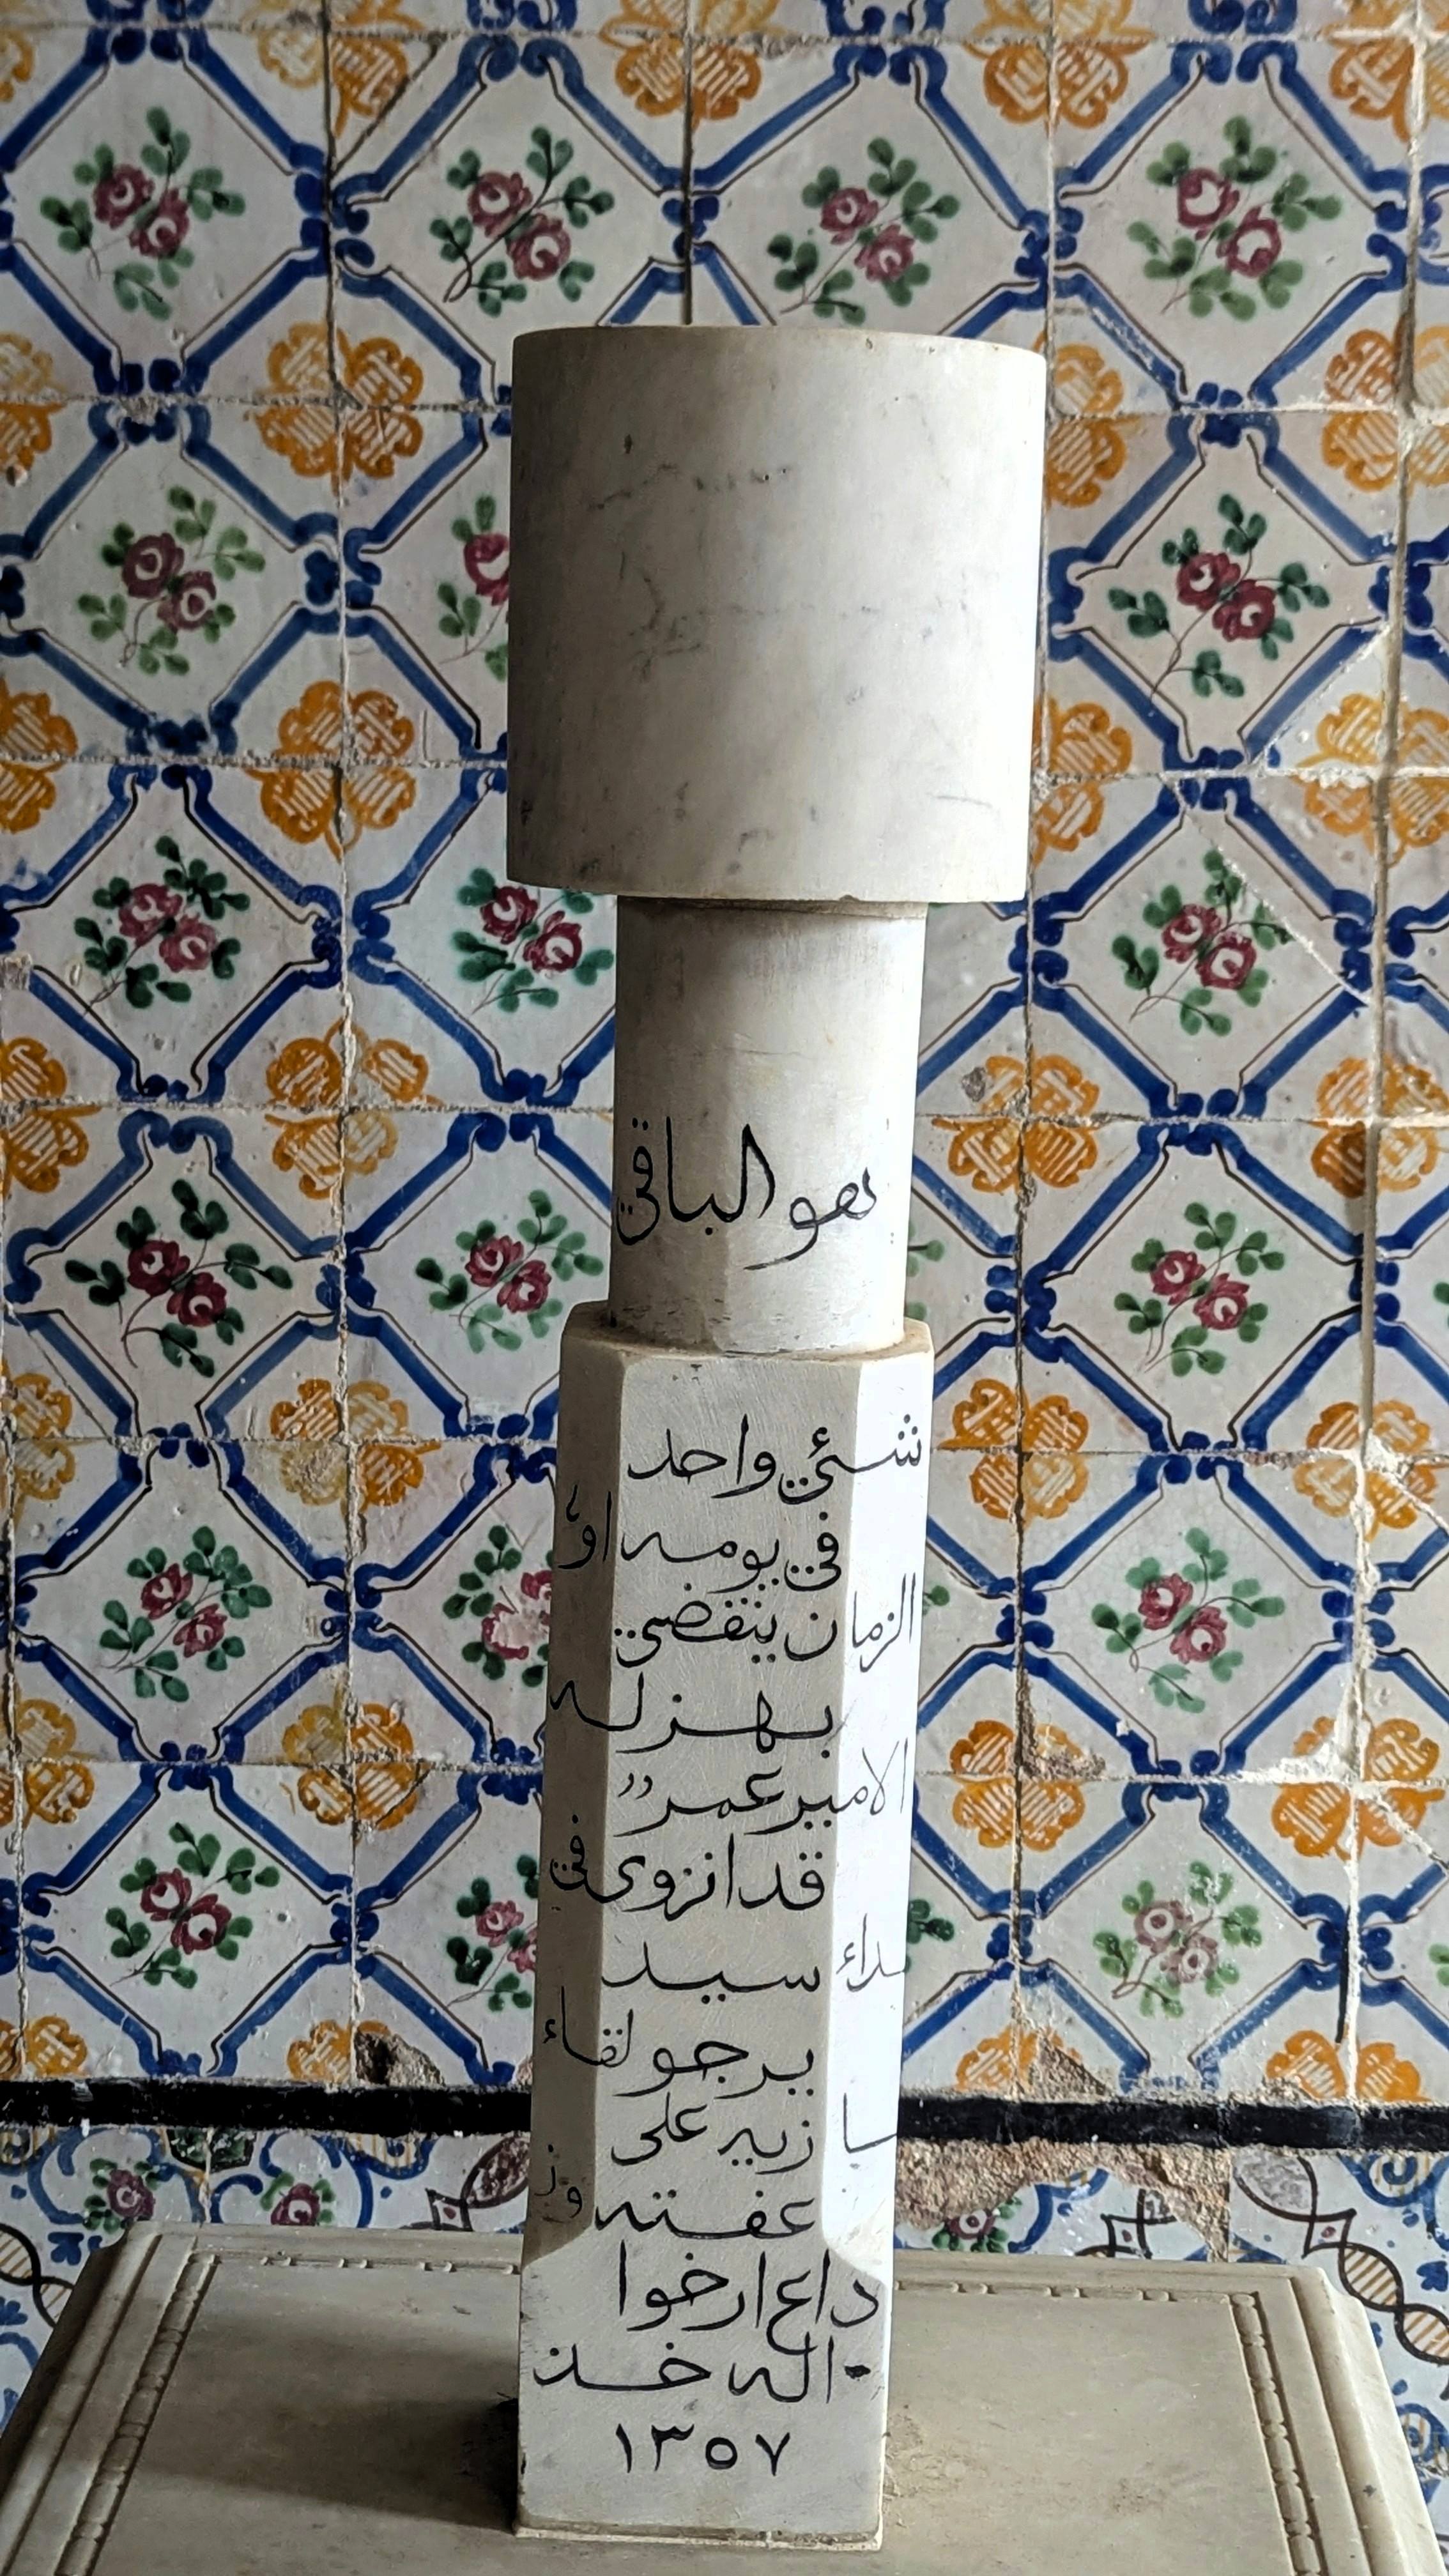 هو الباقي
شئي واحد
في يومه او
الزمان ينقضي
بهزله
الامير عمر
قد انزوى في
سيد
يرجو لقاء
زيه على
عفته
داع ارخوا
اله خذ
١٣٥٧